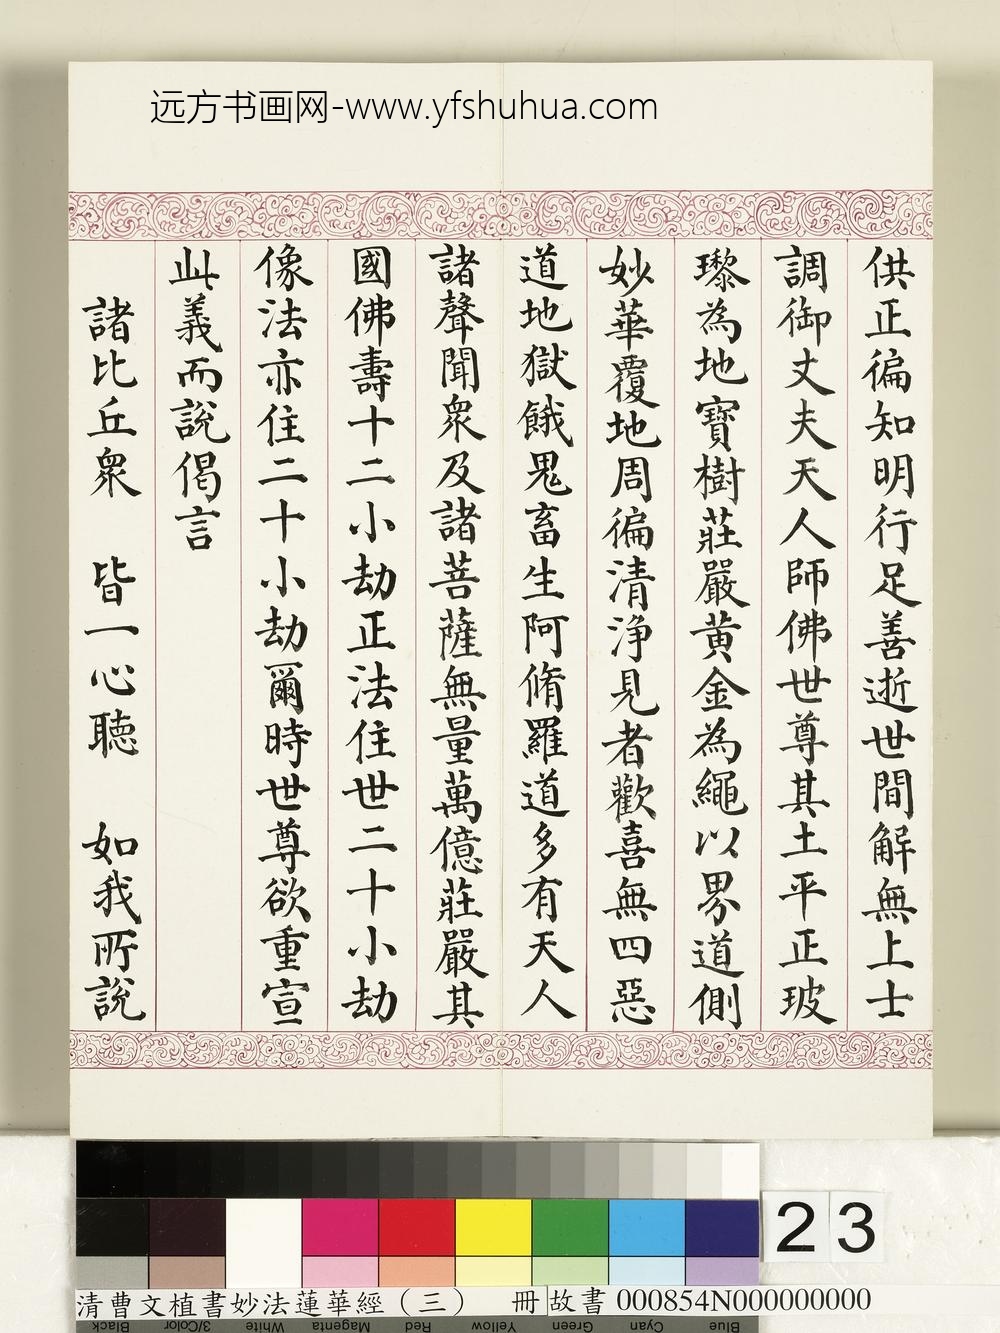 远方书画网-www.yfshuhua.com
供正徧知明行足善逝世間解無上士
調御丈夫天人師佛世尊其土平正玻
瓈為地寶樹莊嚴黄金為繩以界道側
妙華覆地周徧清淨見者歡喜無四惡
道地獄餓鬼畜生阿脩羅道多有天人
諸聲聞衆及諸菩薩無量萬億莊嚴其
國佛壽十二小劫正法住世二十小劫
像法亦住二十小劫爾時世尊欲重宣
此義而說偈言
諸比丘衆 皆一心聽 如我所說
23
清曹文植書妙法蓮華經（三） 冊 故書 000854N000000000
Black 3/Color White Magenta Red Yellow Green Cyan Blue